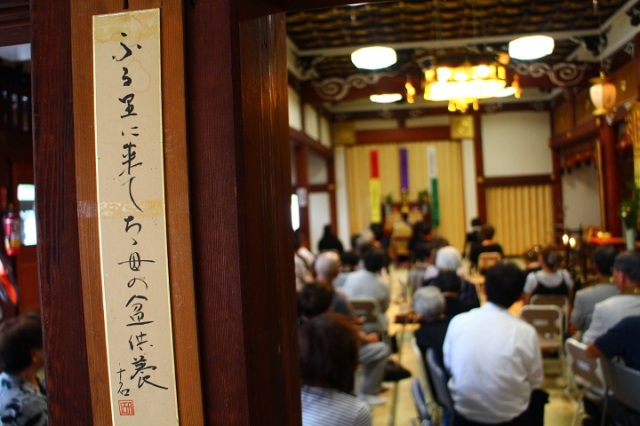 ふる里に来てちゝ母の盆供養
千石